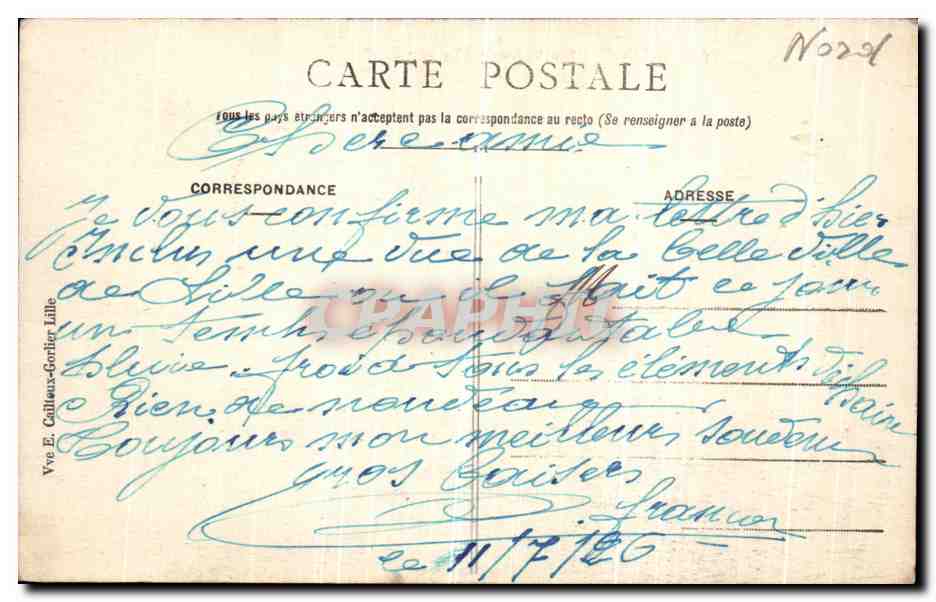 Nord
CARTE POSTALE
Tous les pays étrangers n'acceptent pas la correspondance au recto (Se renseigner a la poste)
Chere amie
CORRESPONDANCE
ADRESSE
Je vous confirme ma lettre d'hier
Inclus une vue de la belle ville
de Lille ou il fait ce jour
un temps épouvantable
pluie froid tous les éléments
Rien de nouveau
Toujours mon meilleur souvenir
gros baisers
le 11/7/26
Vve E. Cailteux-Gorlier Lille
CPAPHIL